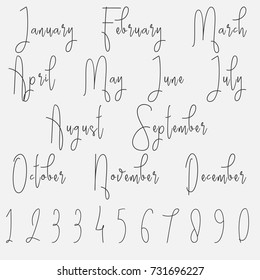 January February March
April May June July
August September
October November December
1 2 3 3 4 5 6 7 8 9 0
shutterstock.com · 731696227